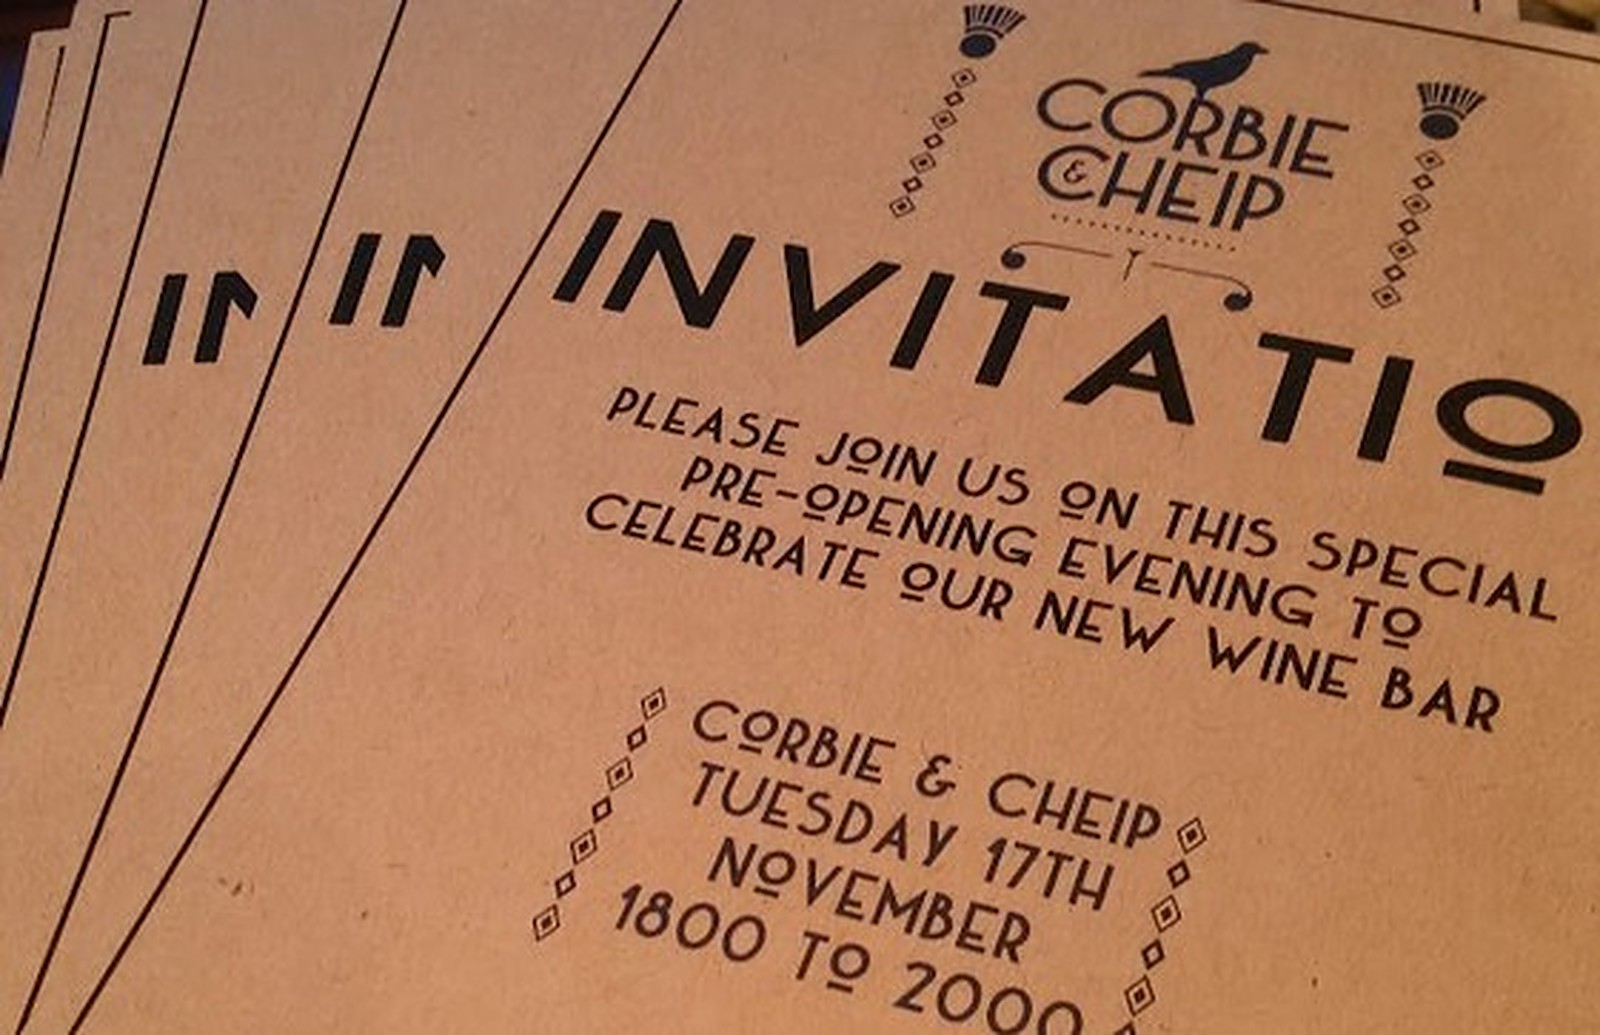 CORBIE
& CHEIP
INVITATIO
PLEASE JOIN US ON THIS SPECIAL
PRE-OPENING EVENING TO
CELEBRATE OUR NEW WINE BAR
CORBIE & CHEIP
TUESDAY 17TH
NOVEMBER
1800 TO 2000